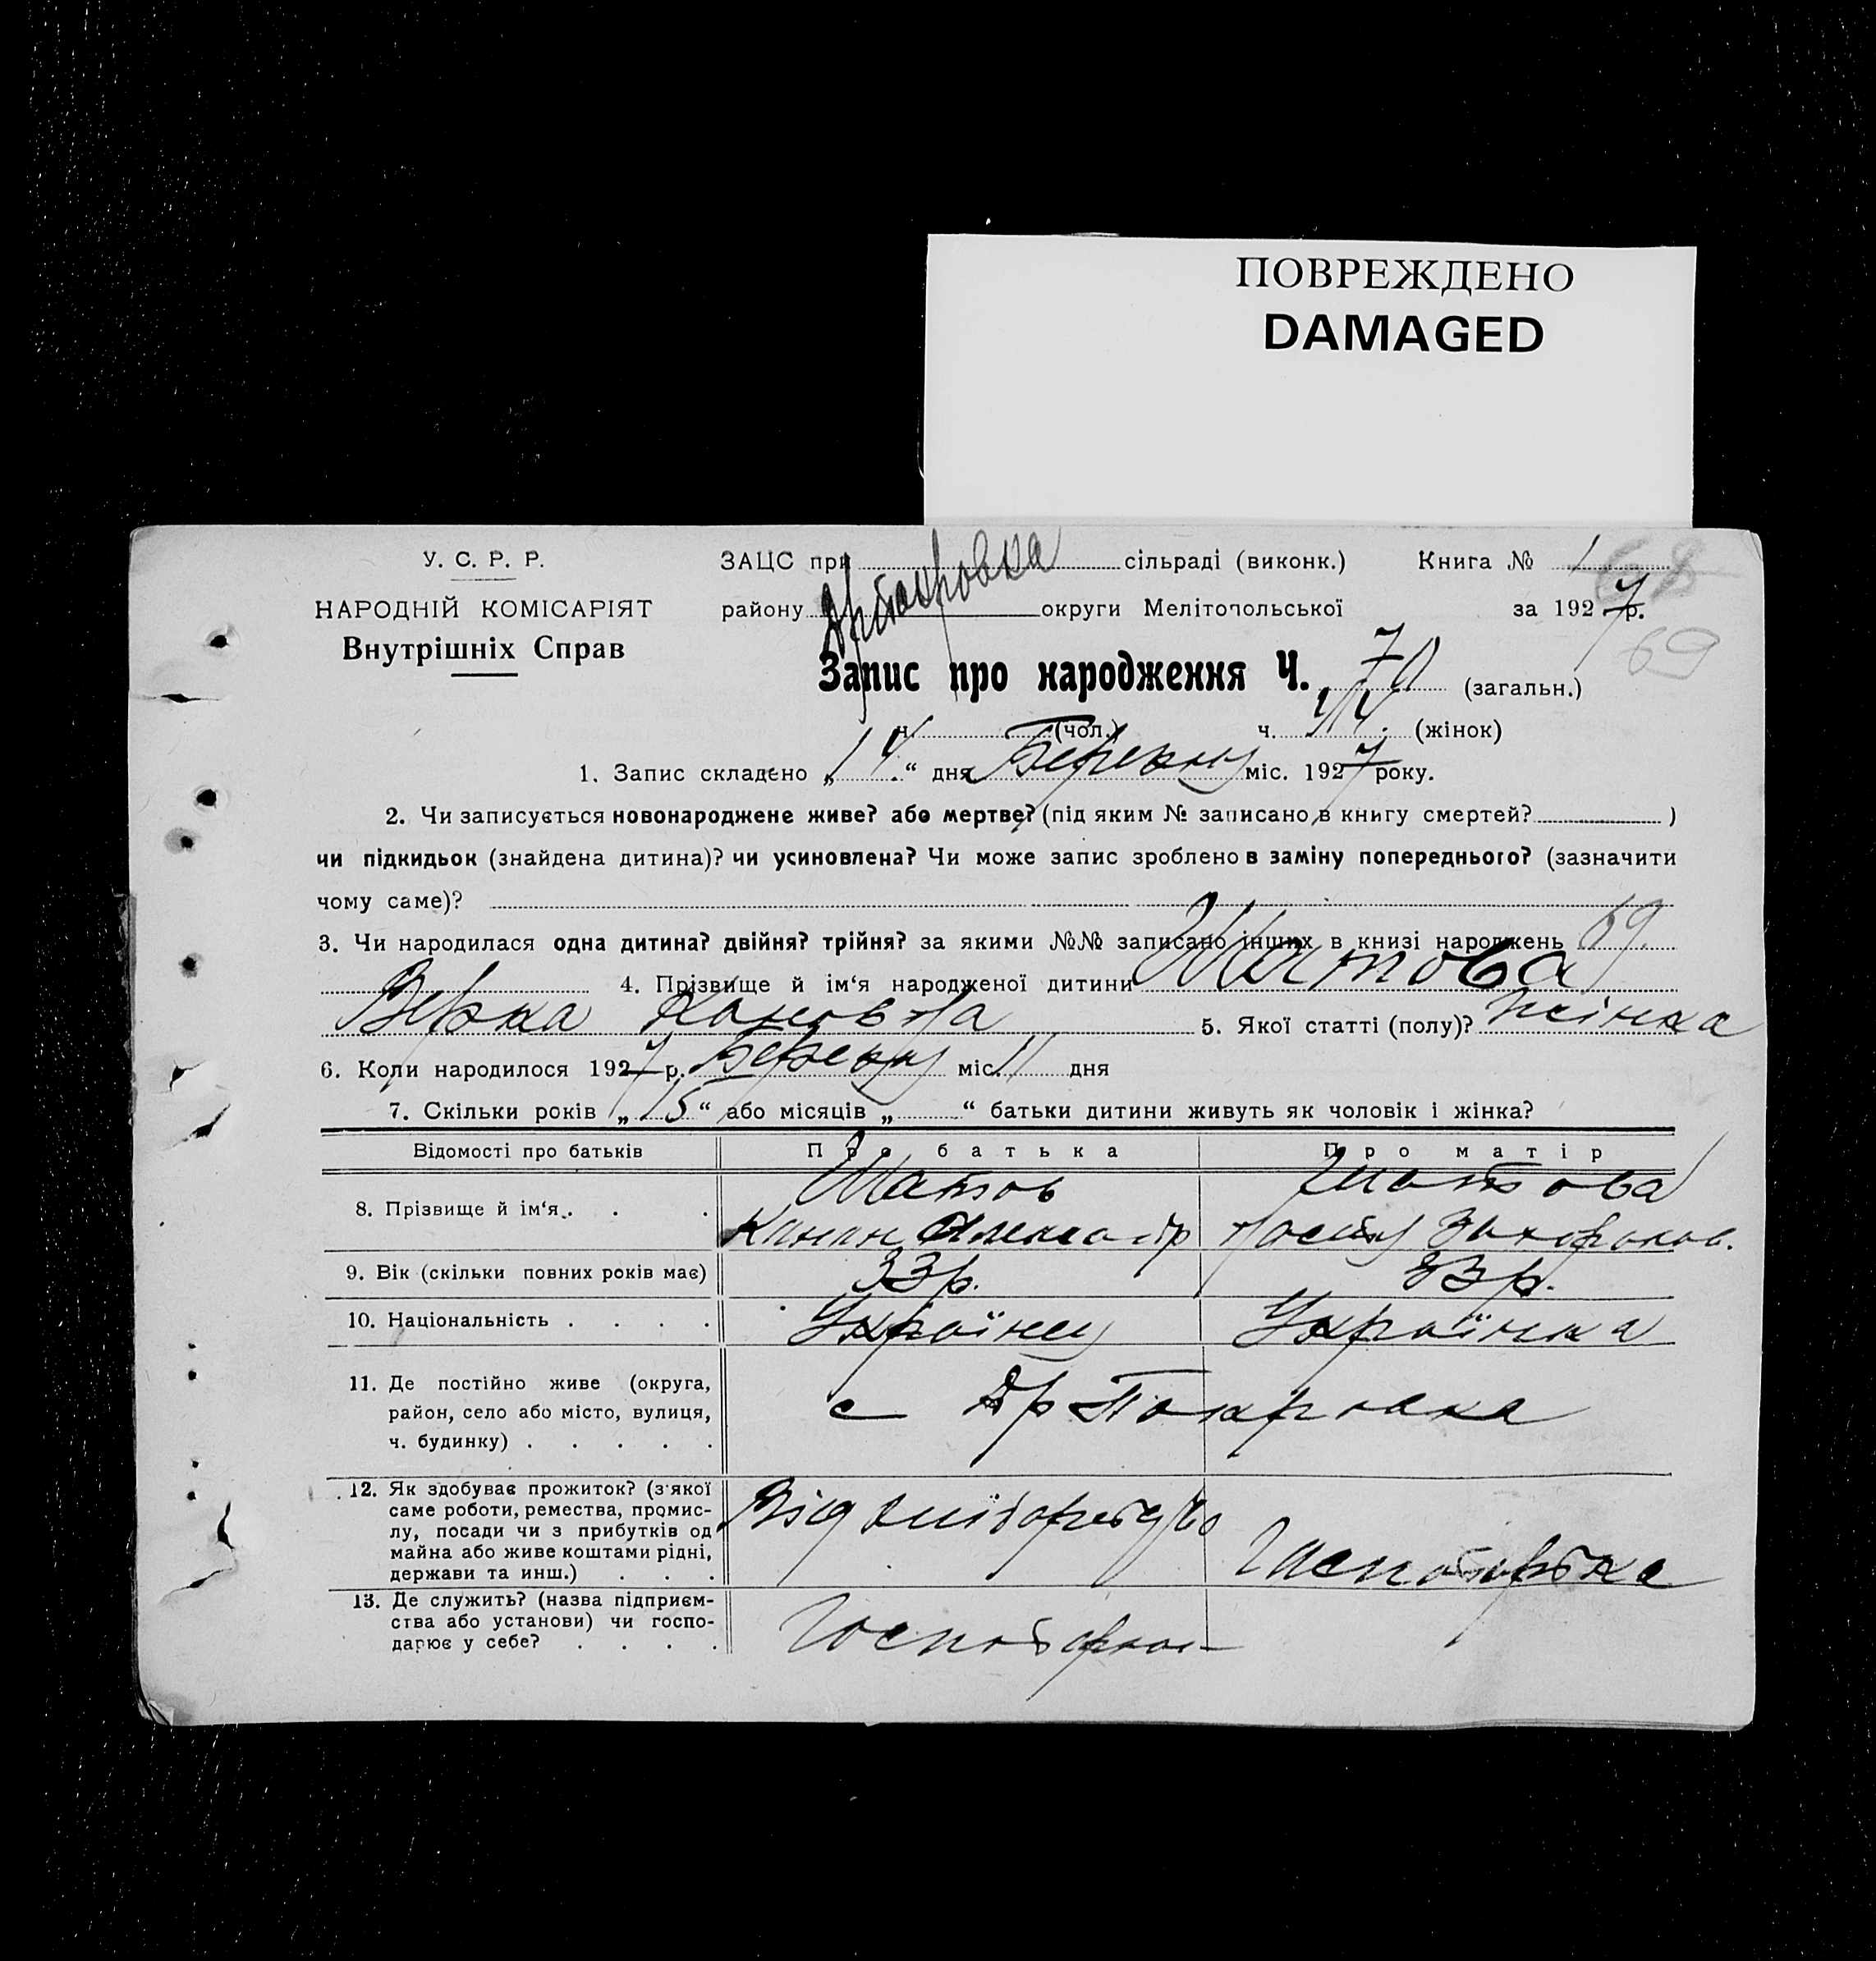 ПОВРЕЖДЕНО
DAMAGED
У. С. Р. Р.
НАРОДНІЙ КОМІСАРІЯТ
Внутрішніх Справ
ЗАЦС при сільраді (виконк.) Книга № 1
району округи Мелітопольської за 1927 р.
69
Запис про народження Ч. 70 (загальн.)
ч. (чол.) ч. (жінок)
1. Запис складено „14“ дня Березня міс. 1927 року.
2. Чи записується новонароджене живе? або мертве? (під яким № записано в книгу смертей? )
чи підкидьок (знайдена дитина)? чи усиновлена? Чи може запис зроблено в заміну попереднього? (зазначити
чому саме)?
3. Чи народилася одна дитина? двійня? трійня? за якими №№ записано інших в книзі народжень 69.
4. Прізвище й ім‘я народженої дитини Шатова
5. Якої статті (полу)? жінка
6. Коли народилося 1927 р. Березня міс. 11 дня
7. Скільки років „15“ або місяців „ “ батьки дитини живуть як чоловік і жінка?
Відомості про батьків Про батька Про матір
8. Прізвище й ім‘я. Шатов Шатова
9. Вік (скільки повних років має) 33 р. 33 р.
10. Національність Українец Українка
11. Де постійно живе (округа,
район, село або місто, вулиця,
ч. будинку) с Др Покровка
12. Як здобуває прожиток? (з'якої
саме роботи, ремества, промис-
лу, посади чи з прибутків од
майна або живе коштами рідні,
держави та инш.)
13. Де служить? (назва підприєм-
ства або установи) чи госпо-
дарює у себе?